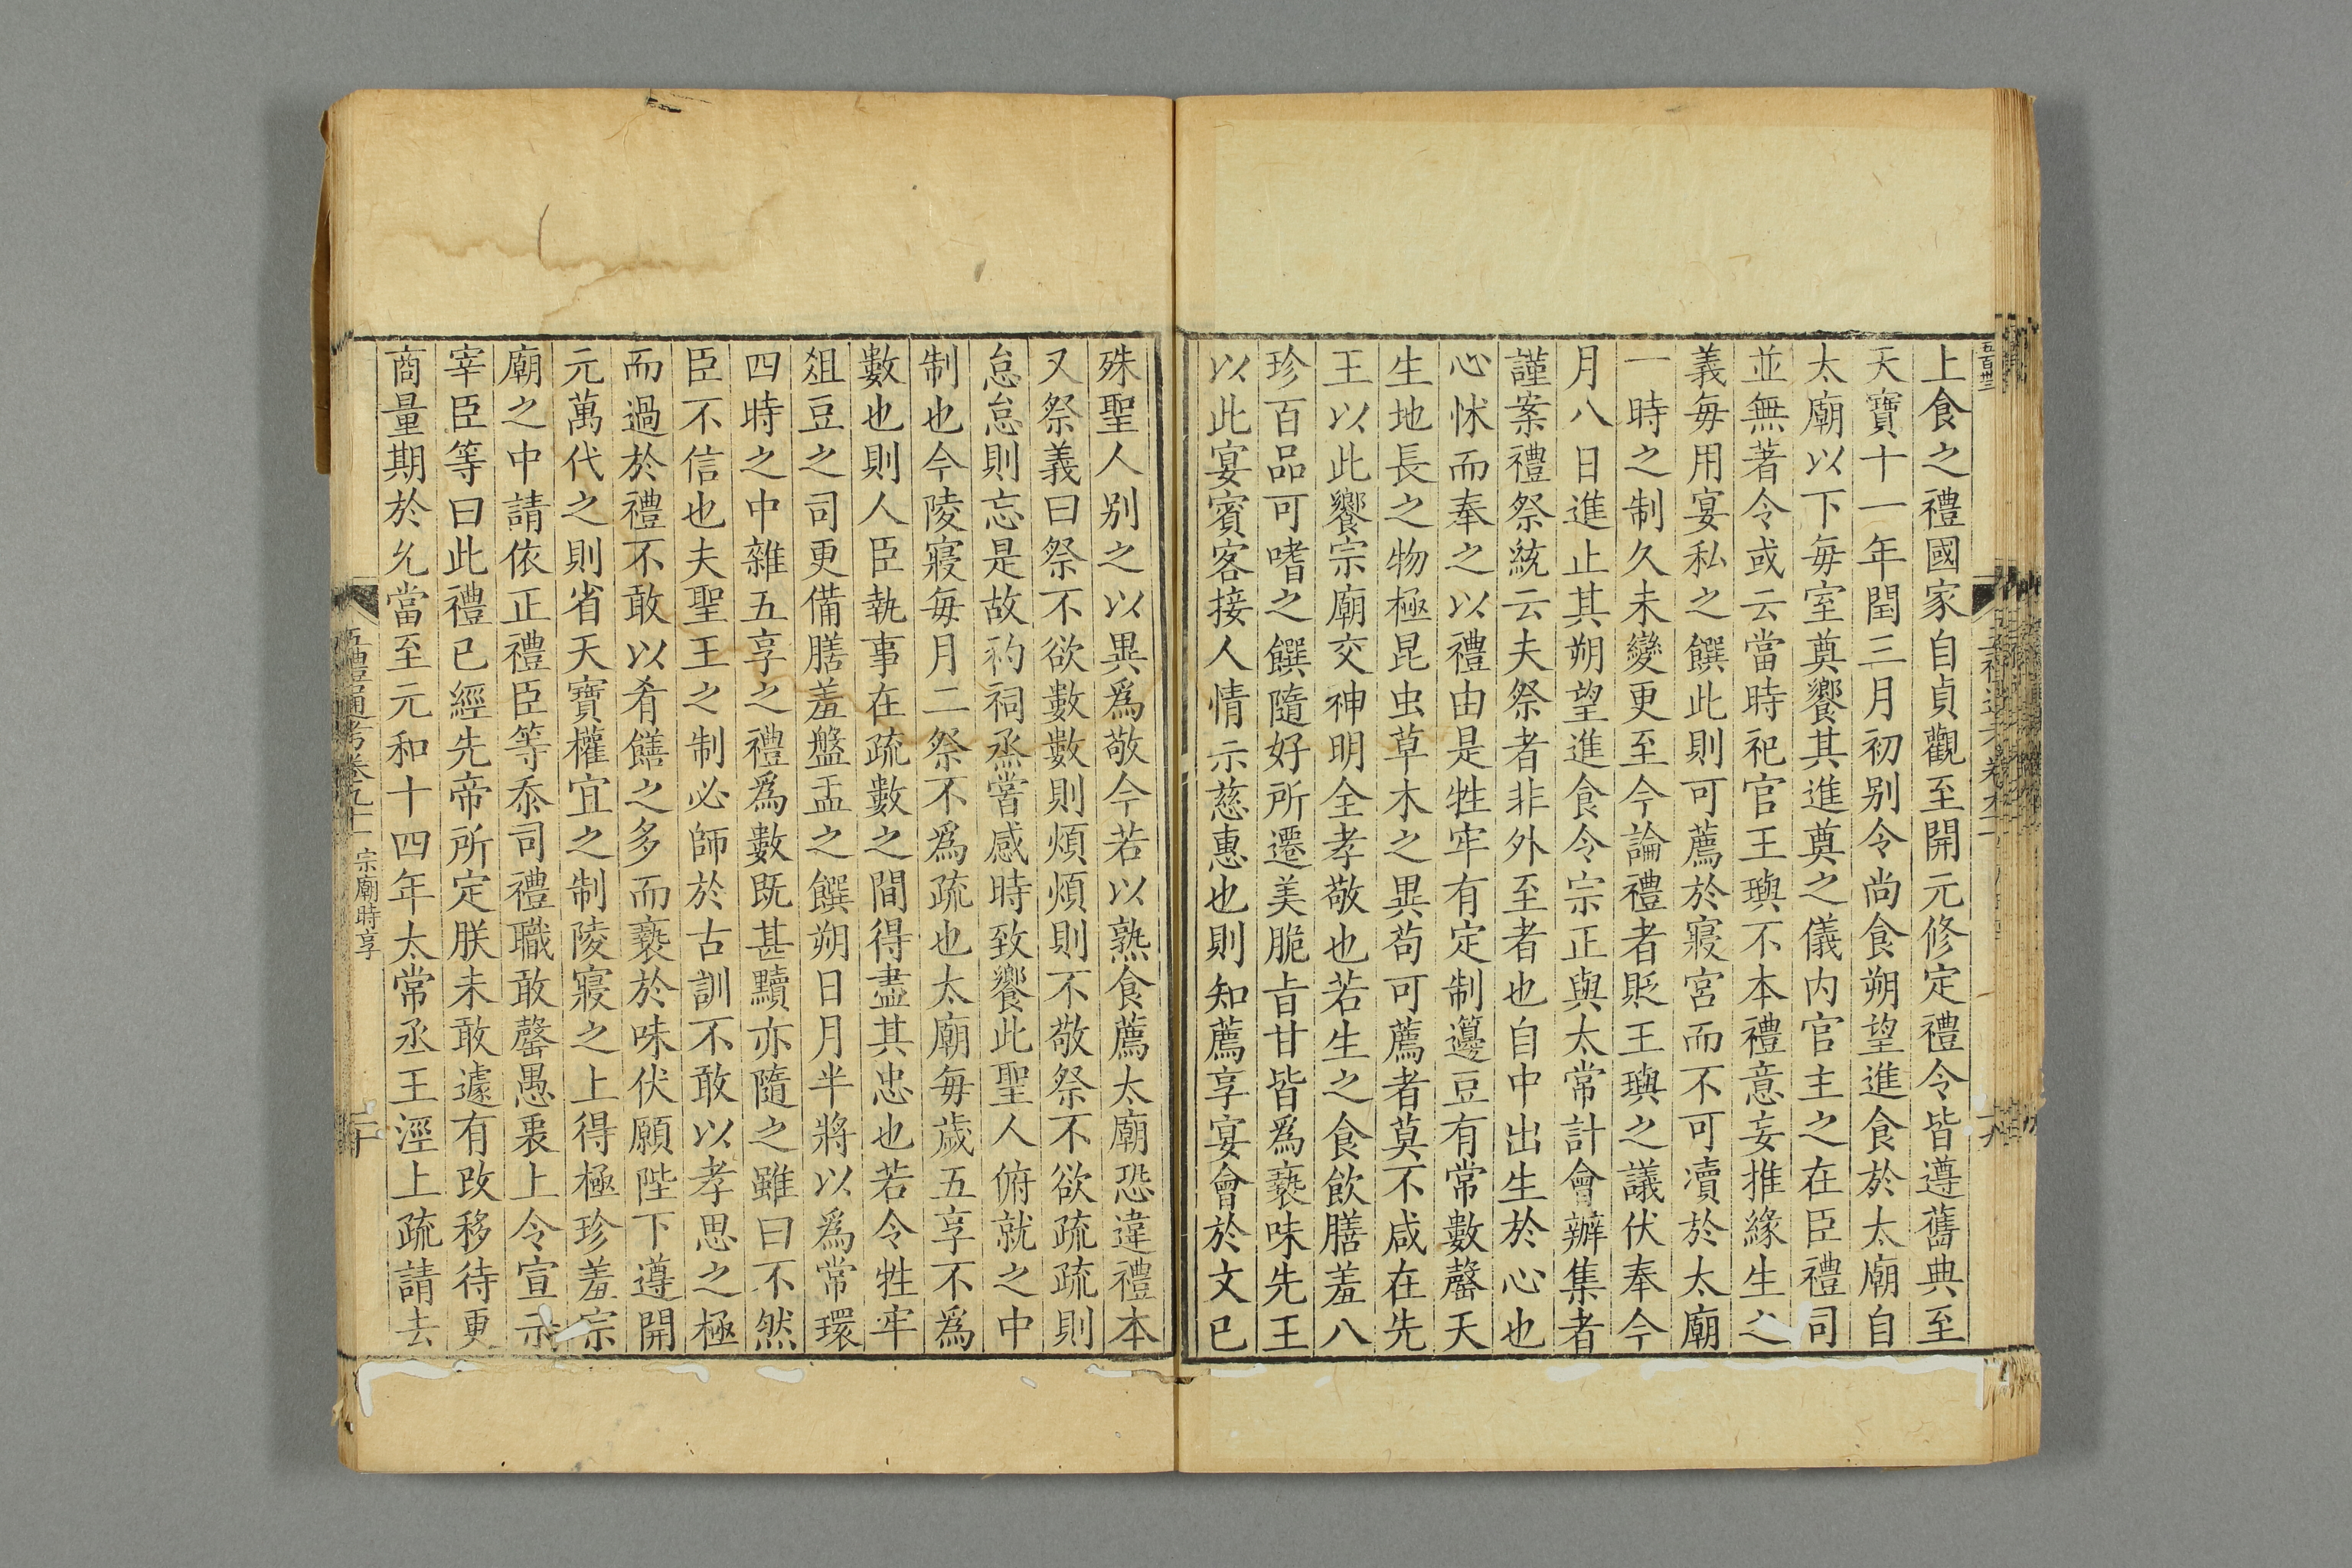 五百卅三
上食之禮國家自貞觀至開元修定禮令皆遵舊典至
天寶十一年閏三月初别令尚食朔望進食於太廟自
太廟以下每室奠饗其進奠之儀内官主之在臣禮司
並無著令或云當時祀官王璵不本禮意妄推緣生之
義每用宴私之饌此則可薦於寢宮而不可瀆於太廟
一時之制久未變更至今論禮者貶王璵之議伏奉今
月八日進止其朔望進食令宗正與太常計會辦集者
謹案禮祭統云夫祭者非外至者也自中出生於心也
心怵而奉之以禮由是牲牢有定制籩豆有常數罄天
生地長之物極昆虫草木之異苟可薦者莫不咸在先
王以此饗宗廟交神明全孝敬也若生之食飲膳羞八
珍百品可嗜之饌隨好所遷美脆旨甘皆爲褻味先王
以此宴賓客接人情示慈惠也則知薦享宴會於文已
殊聖人别之以異爲敬今若以熟食薦太廟恐違禮本
又祭義曰祭不欲數數則煩煩則不敬祭不欲疏疏則
怠怠則忘是故礿祠烝嘗感時致饗此聖人俯就之中
制也今陵寢每月二祭不爲疏也太廟每歲五享不爲
數也則人臣執事在疏數之間得盡其忠也若令牲牢
俎豆之司更備膳羞盤盂之饌朔日月半將以爲常環
四時之中雜五享之禮爲數既甚黷亦隨之雖曰不然
臣不信也夫聖王之制必師於古訓不敢以孝思之極
而過於禮不敢以肴饍之多而褻於味伏願陛下遵開
元萬代之則省天寶權宜之制陵寢之上得極珍羞宗
廟之中請依正禮臣等忝司禮職敢罄愚衷上令宣示
宰臣等曰此禮已經先帝所定朕未敢遽有改移待更
商量期於允當至元和十四年太常丞王涇上疏請去
五禮通考卷九十二 宗廟時享 二十